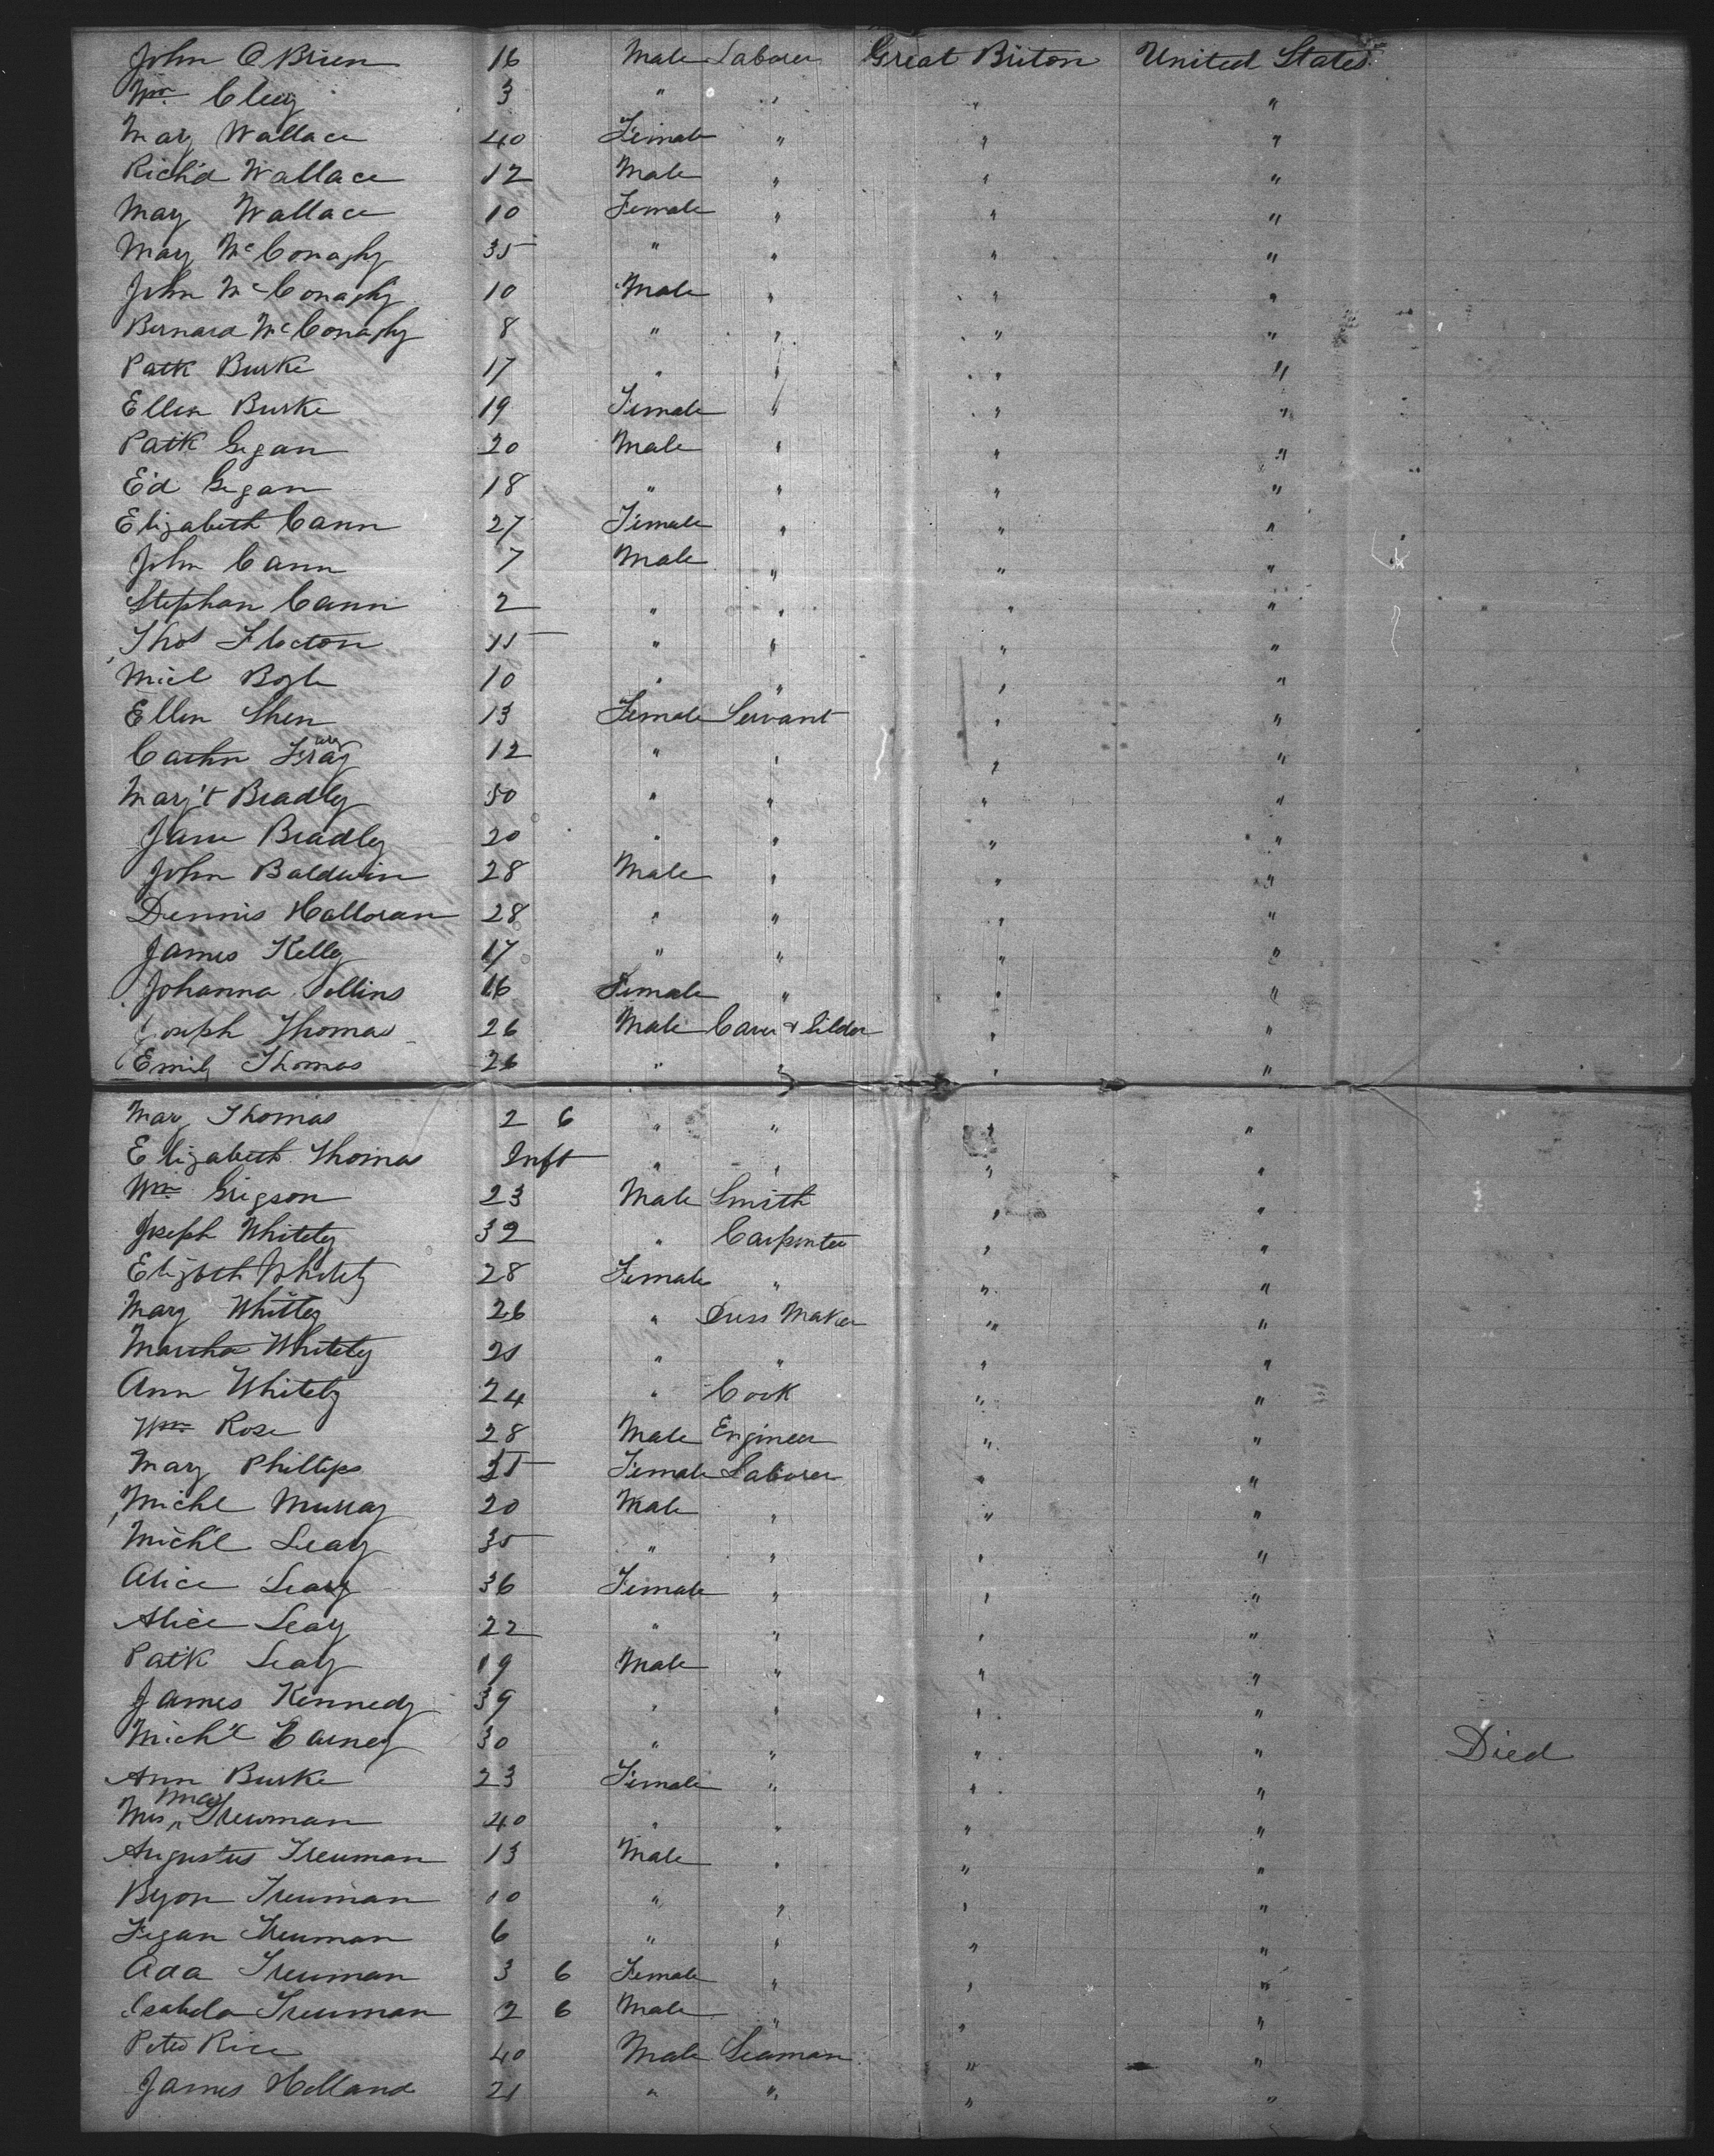 John O Brien 16 Male Laborer Great Briton United States
Wm Cleey 3 " " " "
Mary Wallace 40 Female " " "
Rich'd Wallace 12 Male " " "
Mary Wallace 10 Female " " "
Mary McConaghy 35 " " " "
John McConaghy 10 Male " " "
Bernard McConaghy 8 " " " "
Patk Burke 17 " " " "
Ellen Burke 19 Female " " "
Patk Gegan 20 Male " " "
Ed Gegan 18 " " " "
Elizabeth Cann 27 Female " " "
John Cann 7 Male " " "
Stephan Cann 2 " " " "
Thos 15 " " " "
Micl Boyle 10 " " " "
Ellen Shen 13 Female Servant " "
Cathn 12 " " " "
Marg't Bradley 50 " " " "
Jane Bradley 20 " " " "
John Baldwin 28 Male " " "
Dennis Halloran 28 " " " "
James Kelly 17 " " " "
Johanna Collins 16 Female " " "
Joseph Thomas 26 Male Carver & Gilder " "
Emily Thomas 26 " " " "
Mary Thomas 2 6 " " " "
Elizabeth Thomas Inft " " " "
Wm Grigson 23 Male Smith " "
Joseph Whitely 32 " Carpenter " "
Elizbeth Whitely 28 Female " " "
Mary Whitley 26 " Dress Maker " "
Martha Whitely 21 " " " "
Ann Whitely 24 " Cook " "
Wm Rose 28 Male Engineer " "
Mary Phillips Female Laborer " "
Michl Murray 20 Male " " "
Mich'l Leary 35 " " " "
Alice Leary 36 Female " " "
Alice Leary 22 " " " "
Patk Leary 19 Male " " "
James Kennedy 39 " " " "
Mich'l Carney 30 " " " " Died
Ann Burke 23 Female " " "
Mrs Mary Treuman 40 " " " "
Augustus Treuman 13 Male " " "
Byon Treuman 10 " " " "
Fegan Treuman 6 " " " "
Ada Treuman 3 6 Female " " "
Isabela Treuman 2 6 Male " " "
Peter Rice 40 Male Seaman " "
James Holland 21 " " " "